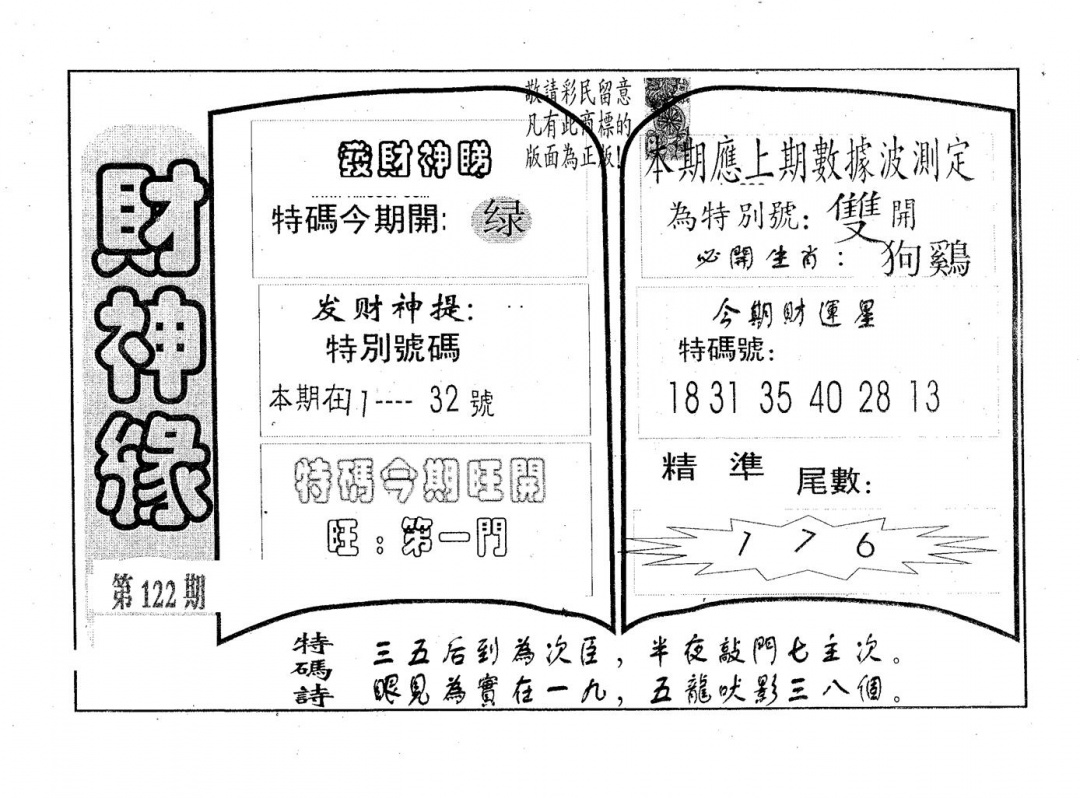 財神緣
第122期
敬請彩民留意
凡有此商標的
版面為正版!
發財神睇
特碼今期開: 绿
发财神提:
特別號碼
本期在11----32號
特碼今期旺開
旺:第一門
本期應上期數據波測定
為特別號: 雙開
必開生肖: 狗鷄
今期財運星
特碼號:
18 31 35 40 28 13
精準 尾數:
1 7 6
特碼詩
三五后到為次臣,半夜敲門七主次。
眼見為實在一九,五龍吠影三八個。